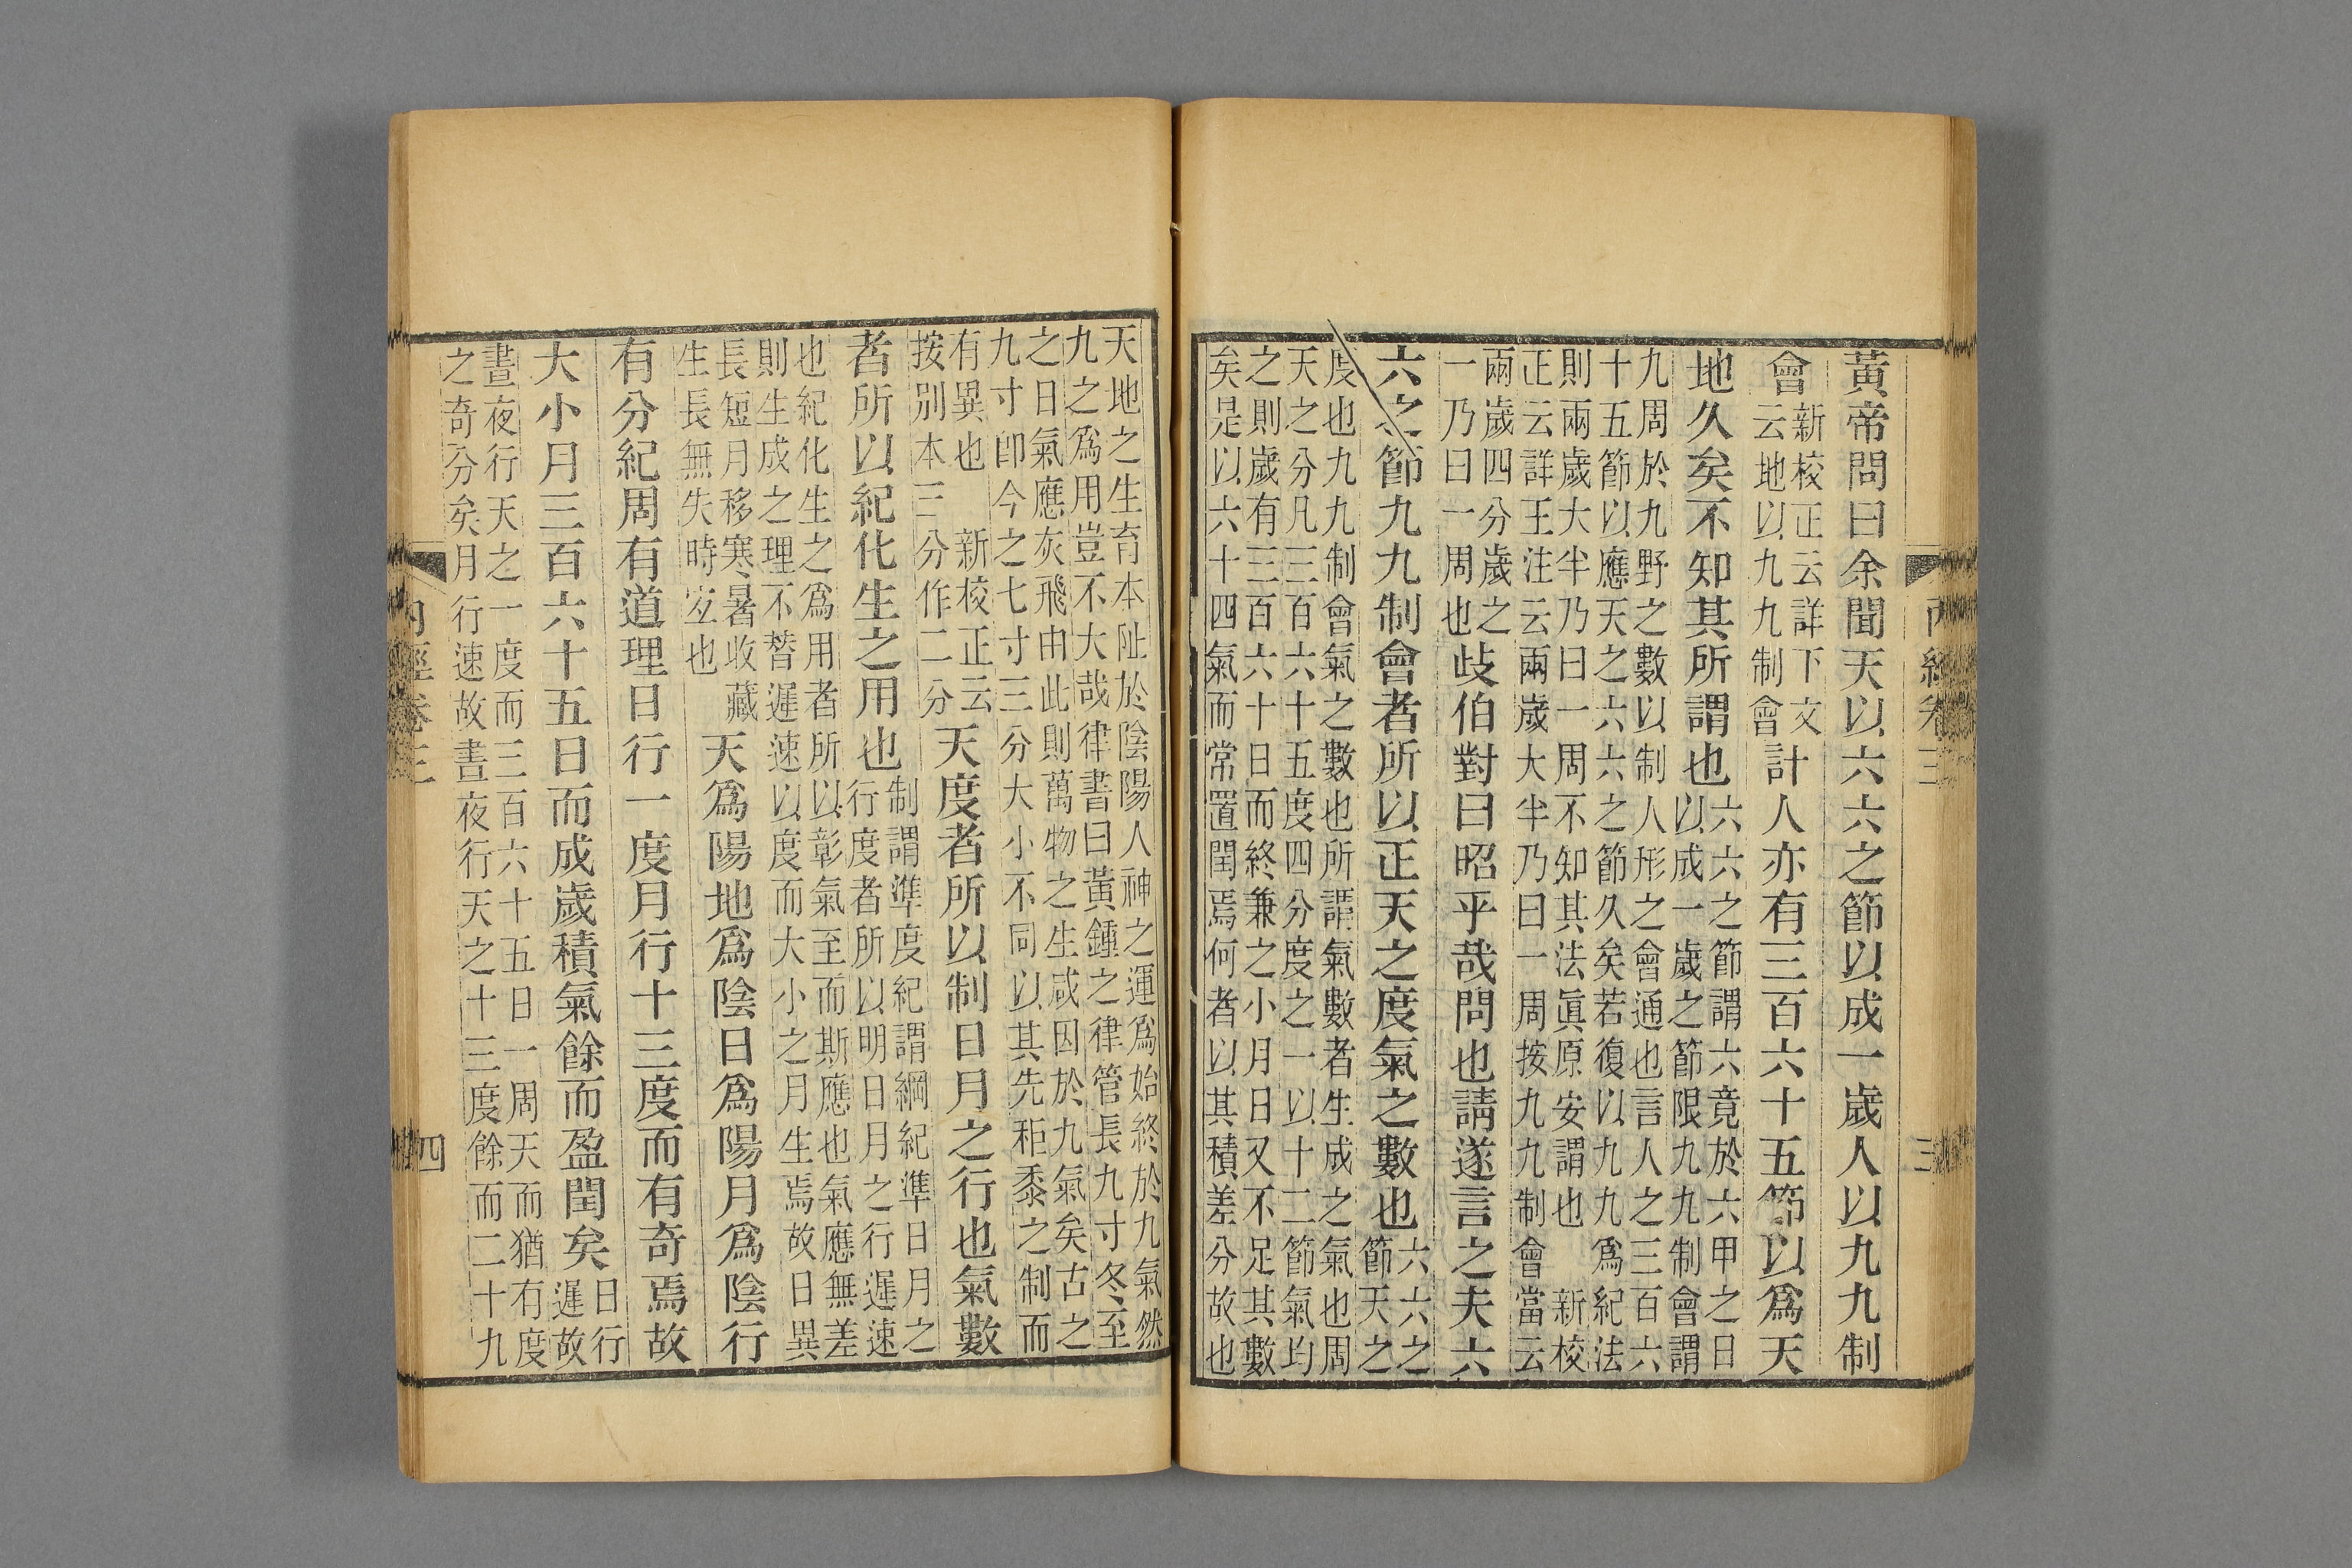 內經卷三 三
黃帝問曰余聞天以六六之節以成一歲人以九九制
會新校正云詳下文云地以九九制會計人亦有三百六十五節以爲天
地久矣不知其所謂也六六之節謂六竟於六甲之日以成一歲之節限九九制會謂
九周於九野之數以制人形之會通也言人之三百六
十五節以應天之六六之節久矣若復以九九爲紀法
則兩歲大半乃曰一周不知其法眞原安謂也 新校
正云詳王注云兩歲大半乃曰一周按九九制會當云
兩歲四分歲之一乃曰一周也歧伯對曰昭乎哉問也請遂言之夫六
六之節九九制會者所以正天之度氣之數也六六之節天之
度也九九制會氣之數也所謂氣數者生成之氣也周
天之分凡三百六十五度四分度之一以十二節氣均
之則歲有三百六十日而終兼之小月日又不足其數
矣是以六十四氣而常置閏焉何者以其積差分故也
天地之生育本阯於陰陽人神之運爲始終於九氣然
九之爲用豈不大哉律書曰黃鍾之律管長九寸冬至
之日氣應灰飛由此則萬物之生咸因於九氣矣古之
九寸卽今之七寸三分大小不同以其先秬黍之制而
有異也 新校正云按別本三分作二分天度者所以制日月之行也氣數
者所以紀化生之用也制謂準度紀謂綱紀準日月之行度者所以明日月之行遲速
也紀化生之爲用者所以彰氣至而斯應也氣應無差
則生成之理不替遲速以度而大小之月生焉故日異
長短月移寒暑收藏生長無失時宜也天爲陽地爲陰日爲陽月爲陰行
有分紀周有道理日行一度月行十三度而有奇焉故
大小月三百六十五日而成歲積氣餘而盈閏矣日行遲故
晝夜行天之一度而三百六十五日一周天而猶有度
之奇分矣月行速故晝夜行天之十三度餘而二十九
內經卷三 四